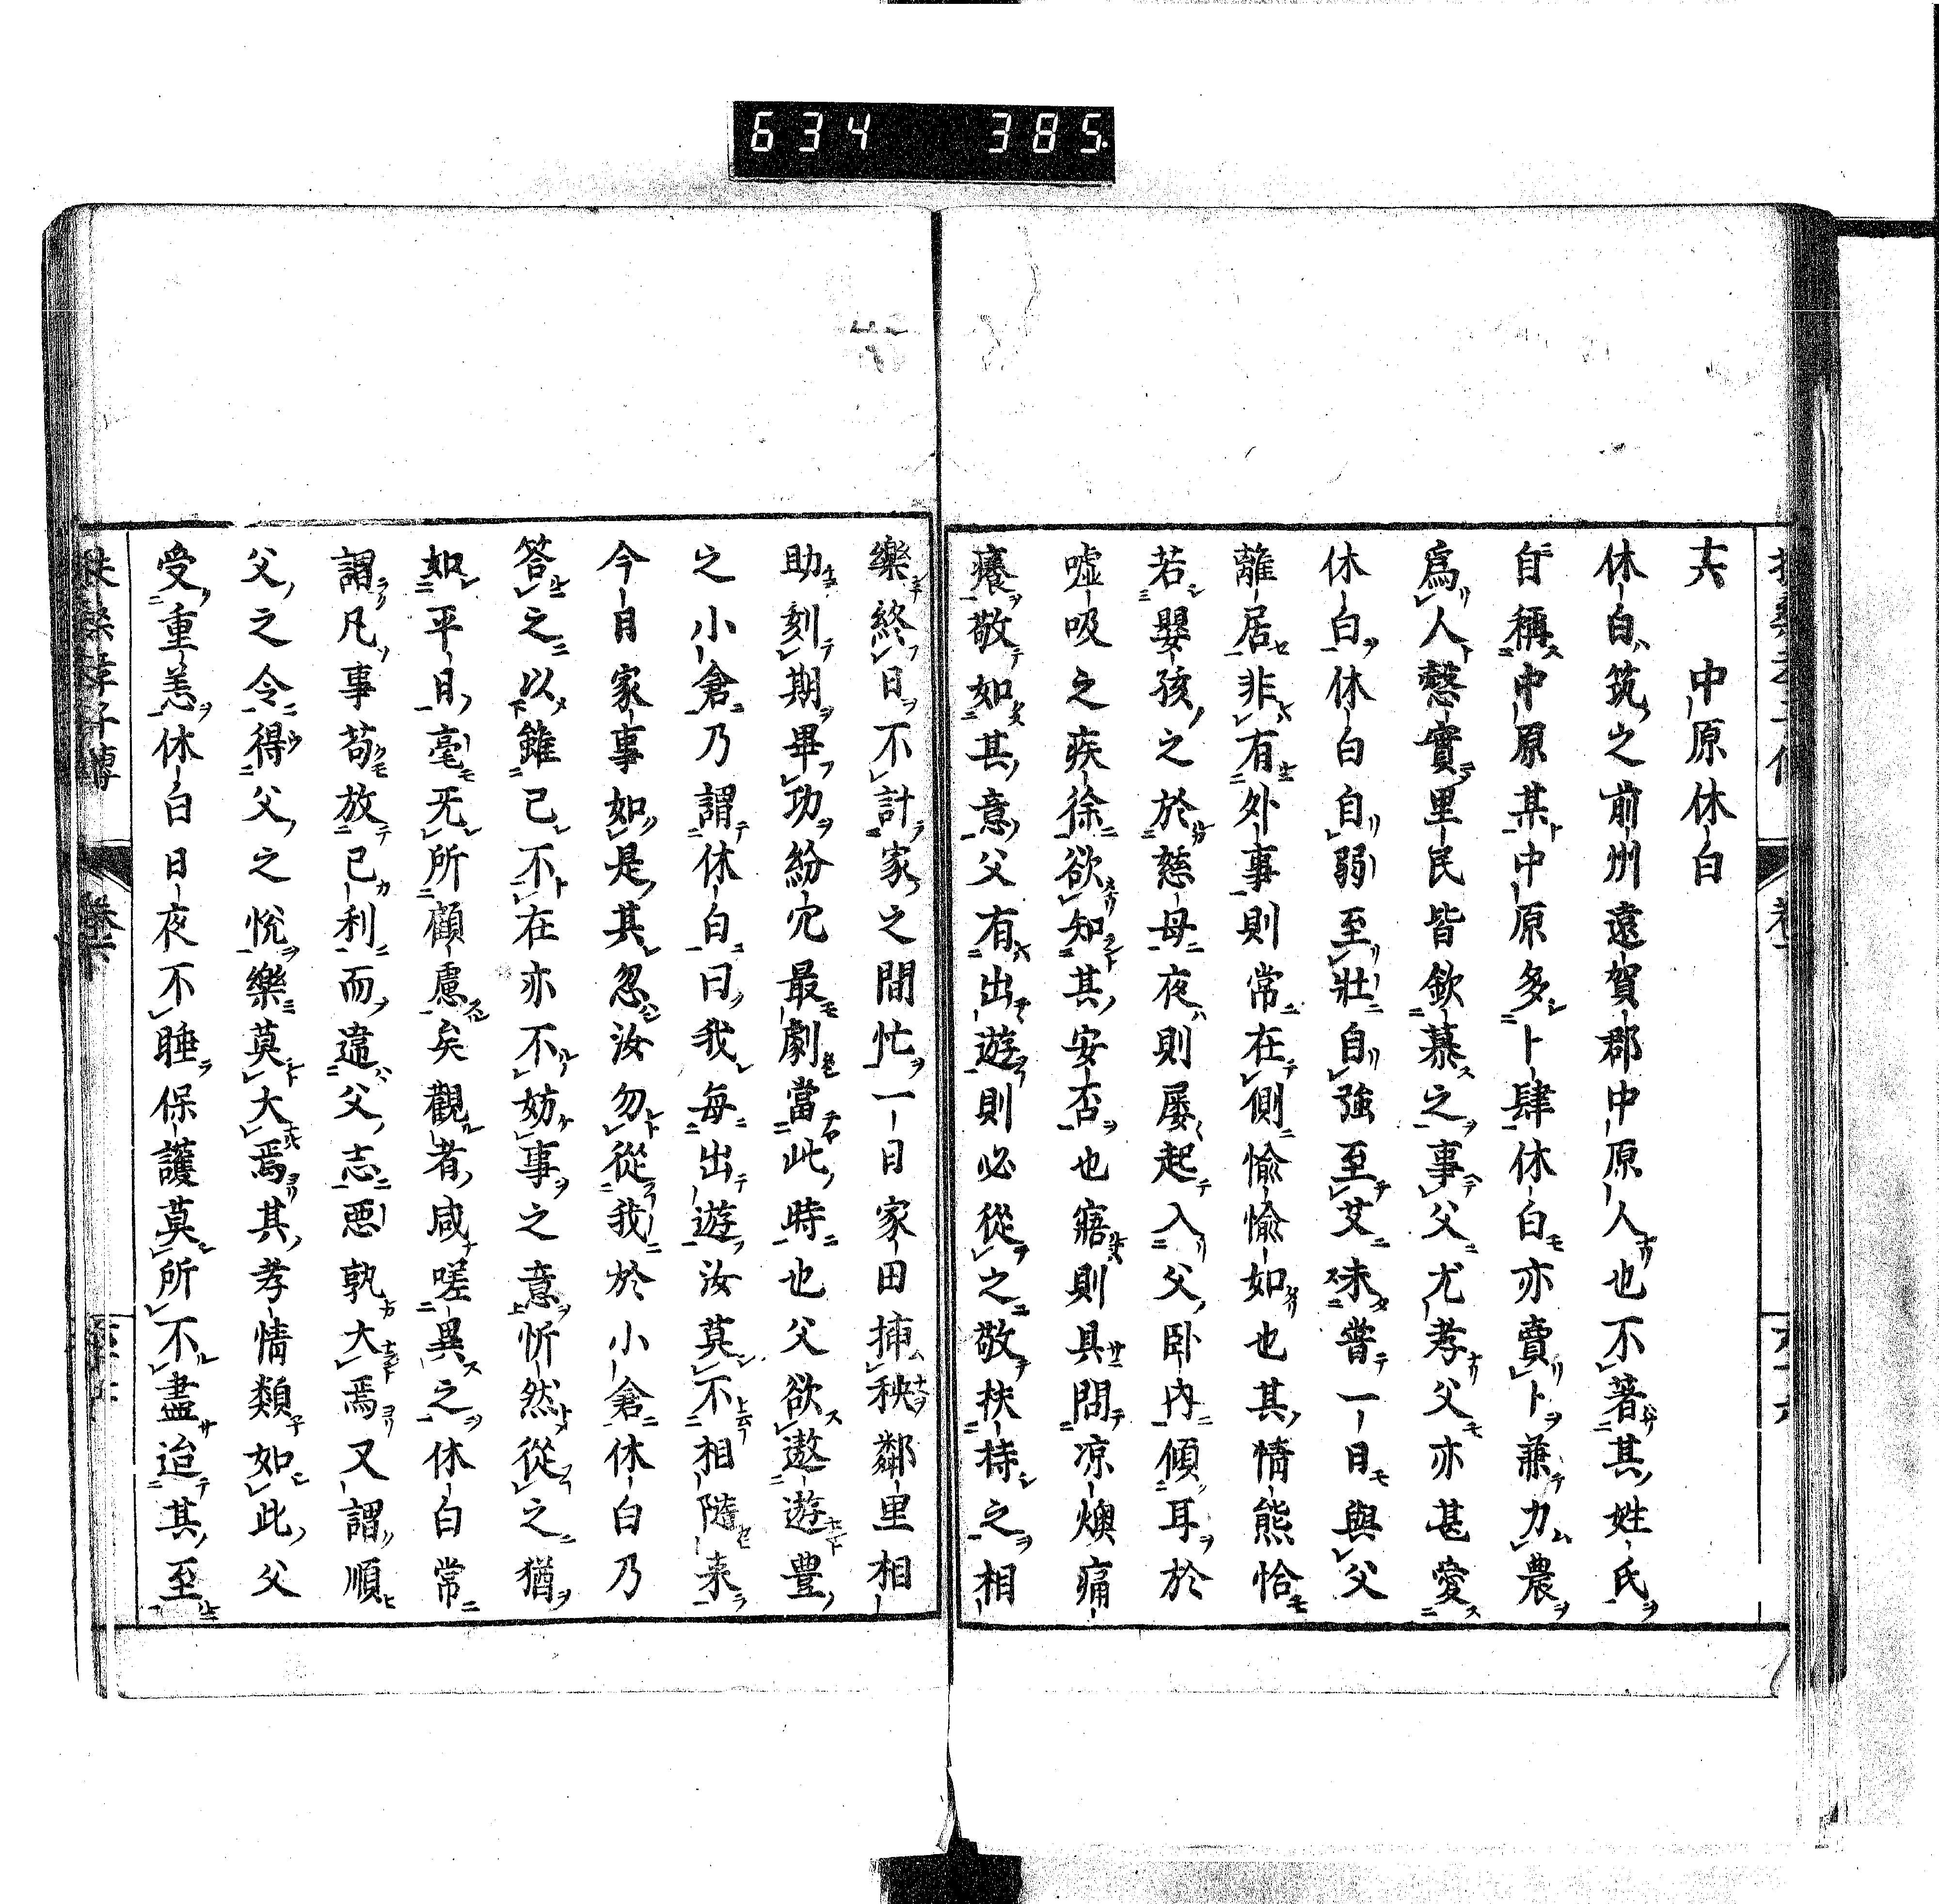 634 385.
十六 中原休白
休白筑之前州遠賀郡中原人也不著其姓氏
自稱中原某中原多卜肆休白亦賣卜兼力農
爲人慤實里民皆欽慕之事父尤孝父亦甚愛
休白休白自弱至壯自強至艾未甞一日與父
離居非有外事則常在側愉愉如也其情態恰
若嬰孩之於慈母夜則屡起入父臥内傾耳於
嘘吸之疾徐欲知其安否也寤則具問凉燠痛
癢敬如其意父有出遊則必從之敬扶持之相
樂終日不計家之間忙一日家田揷秧鄰里相
助刻期畢功紛冗最劇當此時也父欲遨遊豊
之小倉乃謂休白曰我毎出遊汝莫不相隨来
今日家事如是其忽汝勿從我於小倉休白乃
答之以雖己不在亦不妨事之意忻然從之猶
如平日毫无所顧慮矣觀者咸嗟異之休白常
謂凡事苟放己利而違父志悪孰大焉又謂順
父之令得父之悦樂莫大焉其孝情類如此父
受重恙休白日夜不睡保護莫所不盡迨其至
扶桑孝子傳